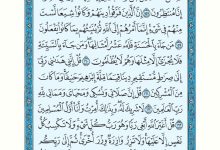 إِنَّا مُنتَظِرُونَ ١٥٨ إِنَّ ٱلَّذِينَ فَرَّقُوا۟ دِينَهُمْ وَكَانُوا۟ شِيَعًا لَّسْتَ
مِنْهُمْ فِى شَىْءٍ إِنَّمَآ أَمْرُهُمْ إِلَى ٱللَّهِ ثُمَّ يُنَبِّئُهُم بِمَا كَانُوا۟ يَفْعَلُونَ
١٥٩ مَن جَآءَ بِٱلْحَسَنَةِ فَلَهُۥ عَشْرُ أَمْثَالِهَا وَمَن جَآءَ بِٱلسَّيِّئَةِ
فَلَا يُجْزَىٰٓ إِلَّا مِثْلَهَا وَهُمْ لَا يُظْلَمُونَ ١٦٠ قُلْ إِنَّنِى هَدَىٰنِى رَبِّىٓ
إِلَىٰ صِرَٰطٍ مُّسْتَقِيمٍ دِينًا قِيَمًا مِّلَّةَ إِبْرَٰهِيمَ حَنِيفًا وَمَا كَانَ
مِنَ ٱلْمُشْرِكِينَ ١٦١ قُلْ إِنَّ صَلَاتِى وَنُسُكِى وَمَحْيَاىَ وَمَمَاتِى لِلَّهِ
رَبِّ ٱلْعَٰلَمِينَ ١٦٢ لَا شَرِيكَ لَهُۥ وَبِذَٰلِكَ أُمِرْتُ وَأَنَا۠ أَوَّلُ ٱلْمُسْلِمِينَ
١٦٣ قُلْ أَغَيْرَ ٱللَّهِ أَبْغِى رَبًّا وَهُوَ رَبُّ كُلِّ شَىْءٍ وَلَا تَكْسِبُ كُلُّ
نَفْسٍ إِلَّا عَلَيْهَا وَلَا تَزِرُ وَازِرَةٌ وِزْرَ أُخْرَىٰ ثُمَّ إِلَىٰ رَبِّكُم